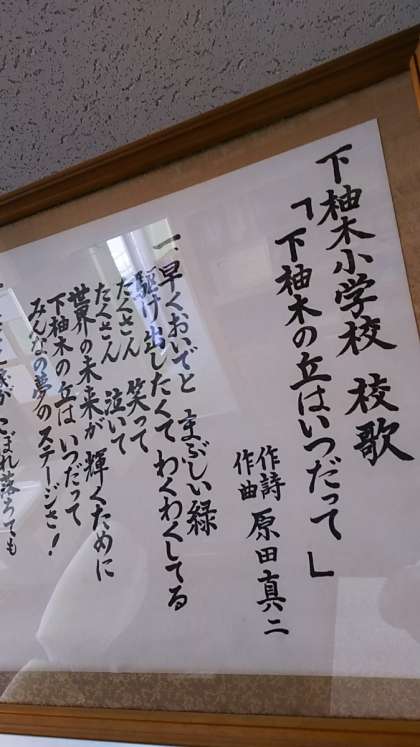 下柚木小学校 校歌
「下柚木の丘はいつだって」
作詩
作曲 原田真二
一、早くおいでと まぶしい緑
駆け出したくて わくわくしてる
たくさん 笑って
たくさん 泣いて
世界の未来が 輝くために
下柚木の丘は いつだって
みんなの夢の ステージさ!
こぼれ落ちても